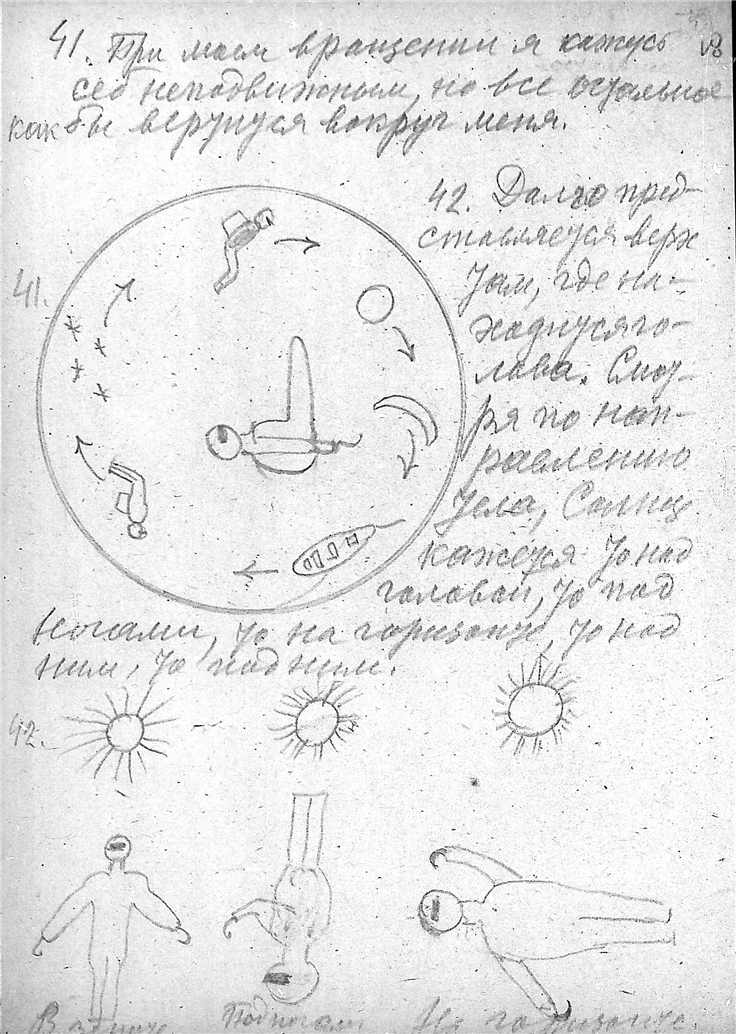 41. При моем вращении я кажусь
себе неподвижным, но все остальное
как бы вертится вокруг меня.
42. Далее пред-
ставляется верх
там, где на-
ходится го-
лова. Смот-
ря по нап-
равлению
тела, Солнце
кажется то над
головой, то под
ногами, то на горизонте, то над
ним, то под ним.
41.
42.
В зените
Под ногами
На горизонте.